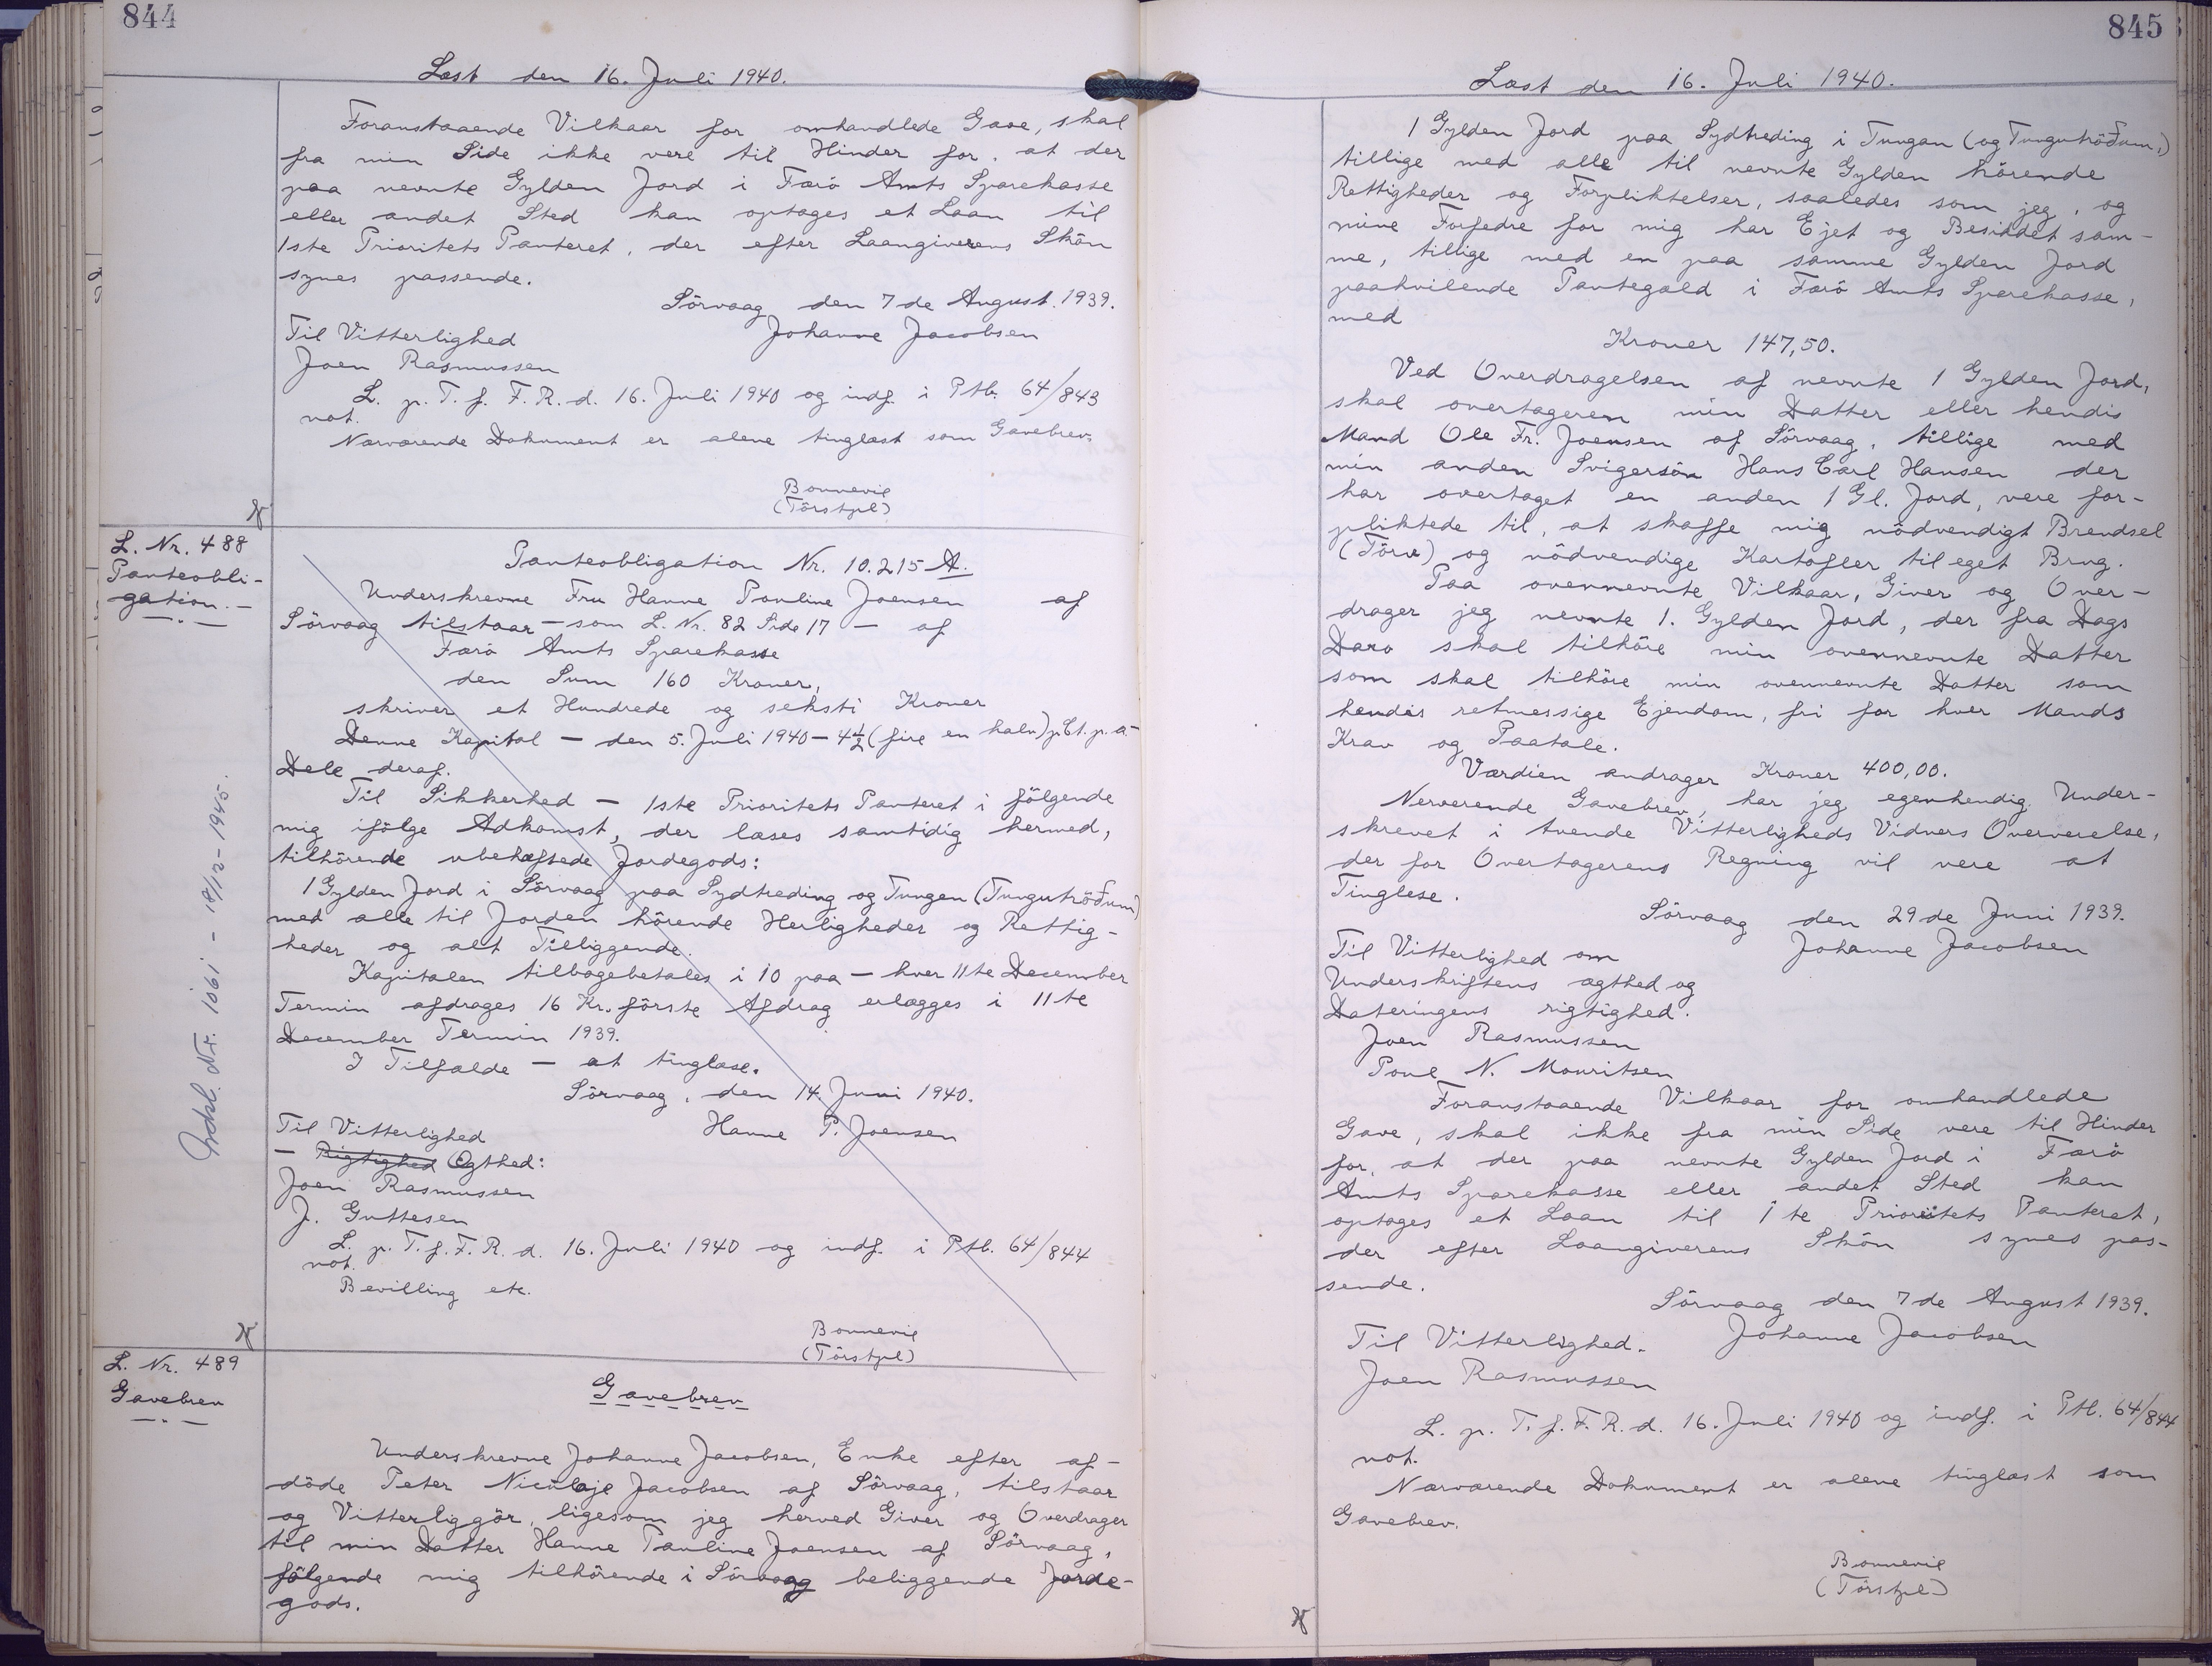 844
Læst den 16. Juli 1940.
Foranstaaende Vilkaar for omhandlede Gave, skal
fra min Side ikke vere til Hinder for, at der
paa nevnte Gylden Jord i Færö Amts Sparekasse
eller andet Sted kan optages et Laan til
1ste Prioritets Panteret, der efter Laangiverens Skön
synes passende.
Sörvaag den 7de August 1939.
Til Vitterlighed Johanne Jacobsen
Joen Rasmussen
L. p. T. f. F. R. d. 16. Juli 1940 og indf. i Ptb. 64/843
not.
Nærværende Dokument er alene tinglæst som Gavebrev.
Bonnevie
(Törstpl)
L. Nr. 488
Panteobli-
gation.-
Panteobligation Nr. 10.215 A.
Underskrevne Fru Hanne Pauline Joensen af
Sörvaag tilstaar - som L. Nr. 82 Side 17 - af
Færö Amts Sparekasse
den Sum 160 Kroner,
skriver et Hundrede og seksti Kroner
Denne Kapital - den 5. Juli 1940 - 4½ (fire en halv) pCt. p. a -
Dele deraf.
Til Sikkerhed - 1ste Prioritets Panteret i fölgende
mig ifölge Adkomst, der læses samtidig hermed,
tilhörende ubehæftede Jordegods:
1 Gylden Jord i Sörvaag paa Sydtreding og Tungen (Tungutröðum)
med alle til Jorden hörende Herligheder og Rettig-
heder og alt Tilliggende.
Kapitalen tilbagebetales i 10 paa - hver 11te December
Termin afdrages 16 Kr. förste Afdrag erlægges i 11te
December Termin 1939.
I Tilfælde - at tinglæse.
Sörvaag, den 14. Juni 1940.
Til Vitterlighed Hanne P. Joensen
- Rigtighed Ægthed:
Joen Rasmussen
J. Guttesen
L. p. T. f. F. R. d. 16. Juli 1940 og indf. i Ptb. 64/844
not.
Bevilling etc.
Bonnevie
(Törstpl)
Nr. 1061 - 18/12-1945.
L. Nr. 489
Gavebrev
Gavebrev
Underskrevne Johanne Jacobsen, Enke efter af-
döde Peter Nicolaje Jacobsen af Sörvaag, tilstaar
og Vitterliggör, ligesom jeg herved Giver og Overdrager
til min Datter Hanne Pauline Joensen af Sörvaag,
fölgende mig tilhörende i Sörvaag beliggende Jorde-
gods.
845
Læst den 16. Juli 1940.
1 Gylden Jord paa Sydtreding i Tungan (og Tungutröðum,)
tillige med alle til nevnte Gylden hörende
Rettigheder og Forpliktelser, saaledes som jeg, og
mine Forfedre for mig har Ejet og Besiddet sam-
me, tillige med en paa samme Gylden Jord
paahvilende Pantegæld i Færö Amts Sparekasse,
med
Kroner 147,50.
Ved Overdragelsen af nevnte 1 Gylden Jord,
skal overtageren min Datter eller hendis
Mand Ole Fr. Joensen af Sörvaag, tillige med
min anden Svigersön Hans Carl Hansen der
har overtaget en anden 1 Gl. Jord, vere for-
pliktede til, at skaffe mig nödvendigt Brendsel
(Törv) og nödvendige Kartofler til eget Brug.
Paa ovennevnte Vilkaar, Giver og Over-
drager jeg nevnte 1. Gylden Jord, der fra Dags
Daro skal tilhöre min ovennevnte Datter
som skal tilhöre min ovennevnte Datter som
hendis retmessige Ejendom, fri for hver Mands
Krav og Paatale.
Værdien andrager Kroner 400,00.
Nerverende Gavebrev, har jeg egenhendig Under-
skrevet i tvende Vitterligheds Vidners Oververelse,
der for Overtagerens Regning vil vere at
Tinglese.
Sörvaag den 29de Juni 1939.
Til Vitterlighed om Johanne Jacobsen
Underskriftens ægthed og
Dateringens rigtighed.
Joen Rasmussen
Poul N. Mouritsen
Foranstaaende Vilkaar for omhandlede
Gave, skal ikke fra min Side vere til Hinder
for, at der paa nevnte Gylden Jord i Færö
Amts Sparekasse eller andet Sted kan
optages et Laan til 1te Prioritets Panteret,
der efter Laangiverens Skön synes pas-
sende.
Sörvaag den 7de August 1939.
Til Vitterlighed. Johanne Jacobsen
Joen Rasmussen
L. p. T. f. F. R. d. 16. Juli 1940 og indf. i Ptb. 64/844
not.
Nærværende Dokument er alene tinglæst som
Gavebrev.
Bonnevie
(Törstpl)